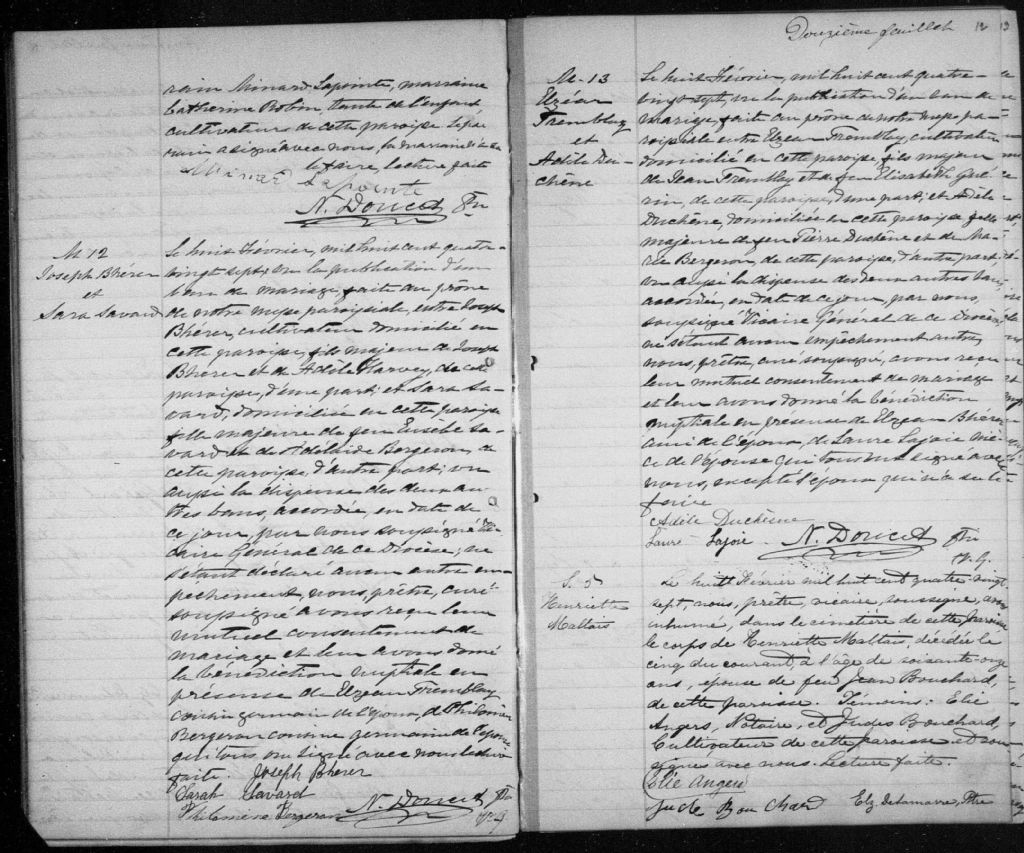 rain Minard Lapointe, marraine
Catherine Potvin, tante de l'enfant
cultivateurs de cette paroisse Le par
rain a signé avec nous, la marraine n'a su
le faire, lecture faite
Minard Lapointe
N. Doucet Ptr
M 12
Joseph Bhérer
et
Sara Savard
Le huit Février, mil huit cent quatre-
vingt sept, vu la publication d'un
ban de mariage faite au prône
de notre messe paroissiale, entre Joseph
Bhérer, cultivateur domicilié en
cette paroisse, fils majeur de Joseph
Bhérer et de Adèle Harvey, de cette
paroisse, d'une part; et Sara Sa-
vard, domiciliée en cette paroisse
fille majeure de feu Eusèbe Sa-
vard et de Adélaïde Bergeron, de
cette paroisse, d'autre part; vu
aussi la dispense des deux au-
tres bans, accordée, en date de
ce jour, par nous soussigné Vi-
caire Général de ce Diocèse; ne
s'étant déclaré aucun autre em-
pêchement, nous, prêtre, curé
soussigné avons reçu leur
mutuel consentement de
mariage et leur avons donné
la bénédiction nuptiale en
présence de Elzéar Tremblay
cousin germain de l'époux, de Philomène
Bergeron cousine germaine de l'épouse
qui tous, ont signé avec nous lecture
faite. Joseph Bherer
Sarah Savard
Philomène Bergeron N. Doucet Ptr
V.G
Douzième feuillet 12
M-13
Elzéar
Tremblay
et
Adèle Du-
chêne
Le huit Février, mil huit cent quatre-
vingt sept, vu la publication d'un ban de
mariage, faite au prône de notre messe pa-
roissiale entre Elzéar Tremblay, cultivateur
domicilié en cette paroisse, fils majeur
de Jean Tremblay et de feu Elisabeth Gué-
rin, de cette paroisse, d'une part; et Adèle
Duchêne, domiciliée en cette paroisse fille
majeure de feu Pierre Duchêne et de Ma-
rie Bergeron, de cette paroisse, d'autre part;
vu aussi la dispense des deux autres bans
accordée, en date de ce jour, par nous,
soussigné Vicaire Général de ce Diocèse
ne s'étant aucun empêchement autre,
nous, prêtre, curé soussigné, avons reçu
leur mutuel consentement de mariage
et leur avons donné la bénédiction
nuptiale en présence de Elzéar Bhérer
ami de l'époux, de Laure Lajoie niè-
ce de l'épouse qui tous ont signé avec
nous, excepté l'époux qui n'a su le
faire
Adèle Duchesne
Laure Lajoie. N. Doucet Ptr
V.G.
S. 5
Henriette
Maltais
Le huit Février mil huit cent quatre vingt
sept, nous, prêtre, vicaire, soussigné, avons
inhumé, dans le cimetière de cette paroisse
le corps de Henriette Maltais, décédée le
cinq du courant, à l'âge de soixante-onze
ans, épouse de feu Jean Bouchard,
de cette paroisse. Témoins: Elie
Angers, Notaire, et Judes Bouchard,
Cultivateur de cette paroisse et sou-
signés avec nous. Lecture faite.
Elie Angers
Jude Bou Chard Elz. DeLamarre, Ptre